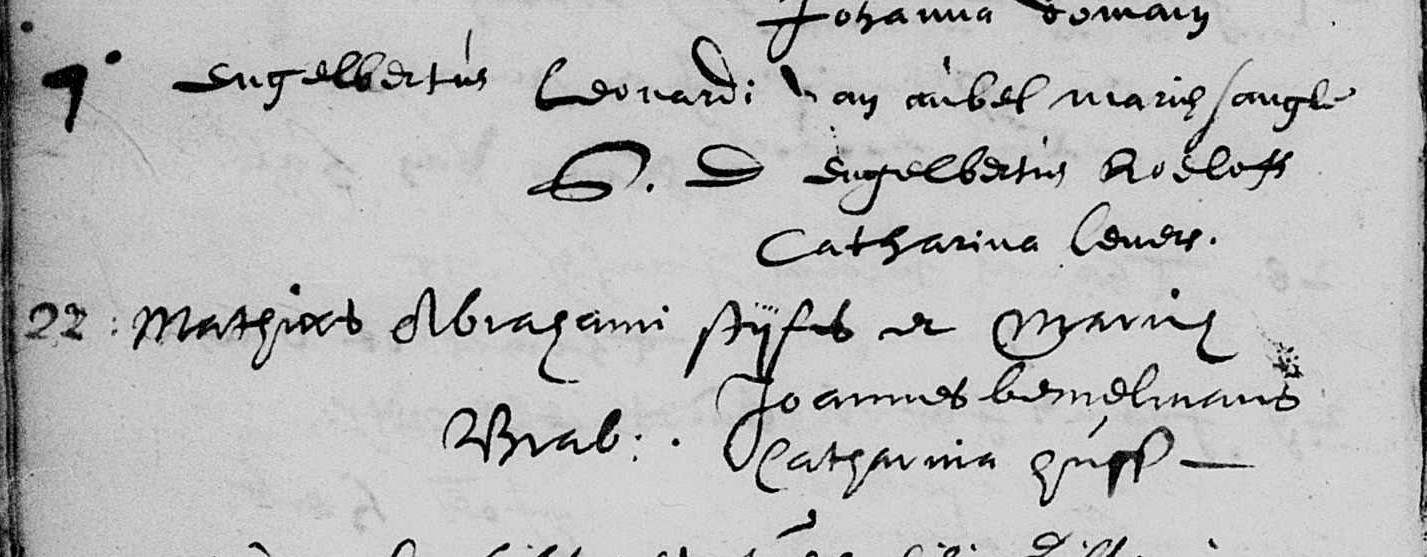 Johanna Domain
9 Engelbertus Leonardi Van aubel mariæ sangle
S. D Engelbertus Roeloffs
Catharina Levers.
22: Mathias Abrahami stijfs et Mariæ
Joannes bemelmans
Brab: . Catharina